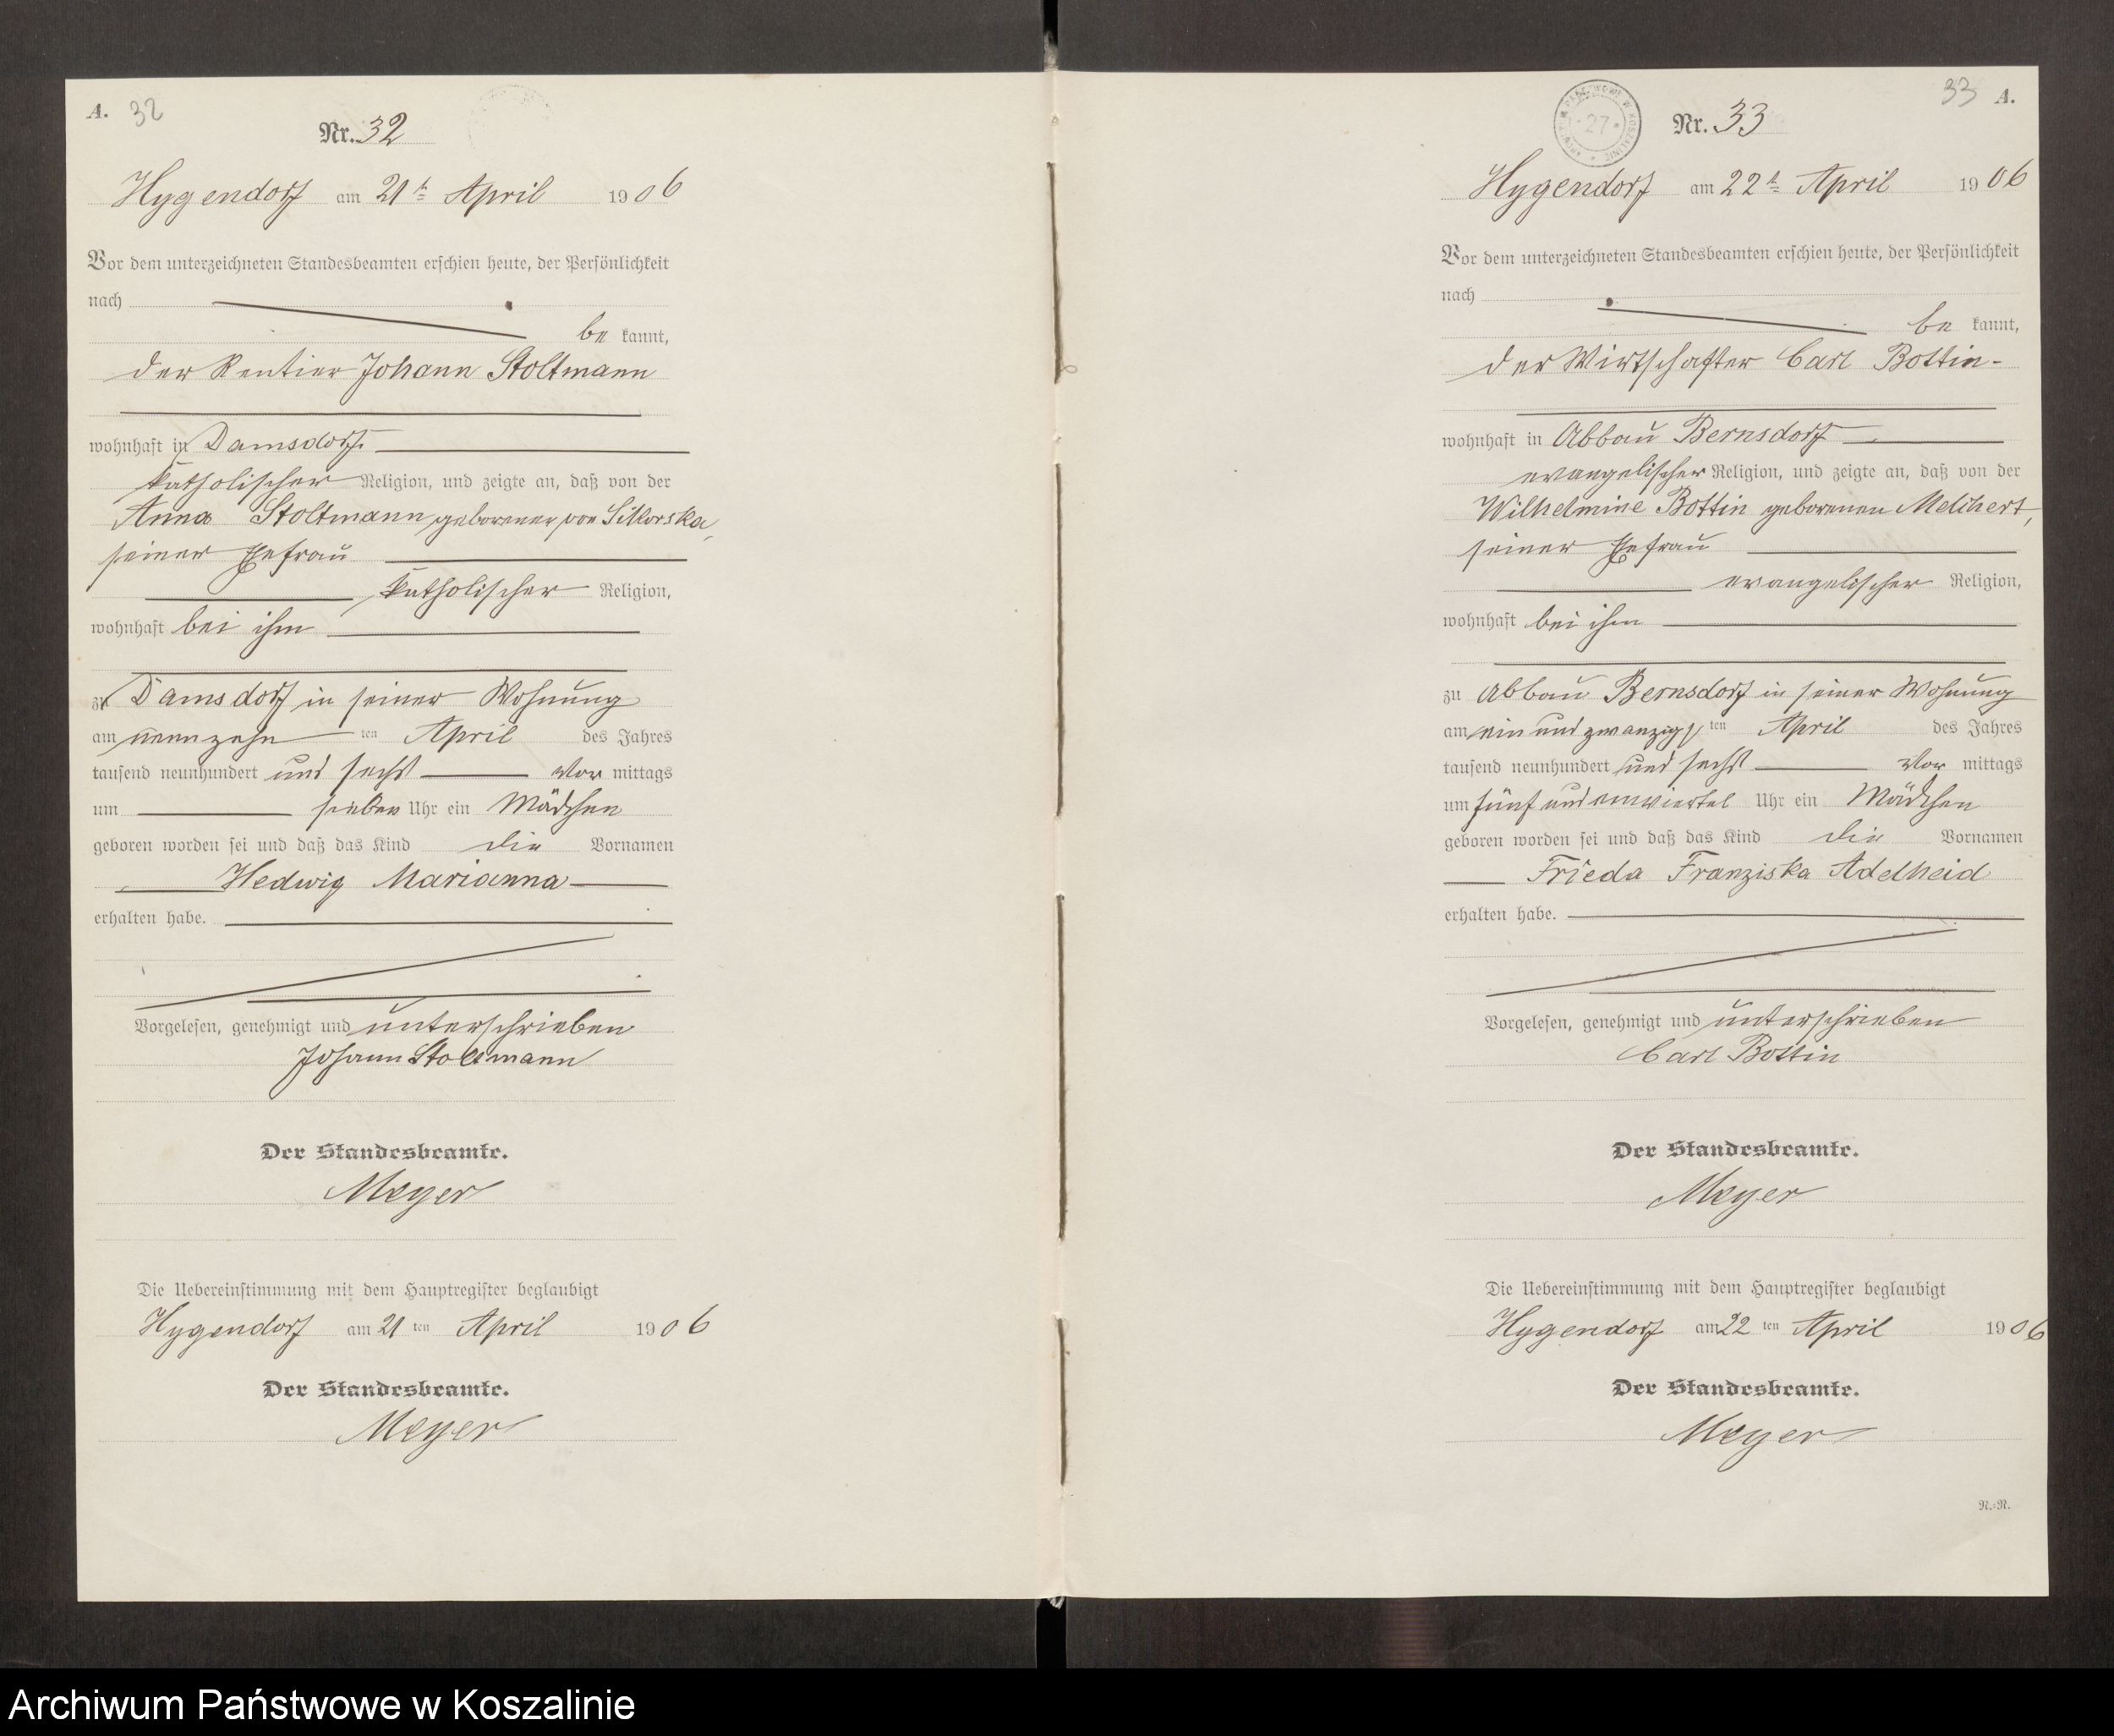 A. 32
Nr. 32
Hygendorf am 21ten April 1906
Vor dem unterzeichneten Standesbeamten erschien heute, der Persönlichkeit
nach
be kannt,
der Rentier Johann Stoltmann
wohnhaft in Damsdorf
katholischer Religion, und zeigte an, daß von der
Anna Stoltmann geborenen von Sikorska,
seiner Ehefrau
katholischer Religion,
wohnhaft bei ihm
zu Damsdorf in seiner Wohnung
am neunzehn ten April des Jahres
tausend neunhundert und sechs Vor mittags
um sieben Uhr ein Mädchen
geboren worden sei und daß das Kind die Vornamen
Hedwig Marianna
erhalten habe.
Vorgelesen, genehmigt und unterschrieben
Johann Stoltmann
Der Standesbeamte.
Meyer
Die Uebereinstimmung mit dem Hauptregister beglaubigt
Hygendorf am 21 ten April 1906
Der Standesbeamte.
Meyer
33 A.
27
Nr. 33
Hygendorf am 22ten April 1906
Vor dem unterzeichneten Standesbeamten erschien heute, der Persönlichkeit
nach
be kannt,
der Wirtschafter Carl Bottin
wohnhaft in Abbau Bernsdorf
evangelischer Religion, und zeigte an, daß von der
Wilhelmine Bottin geborenen Melchert,
seiner Ehefrau
evangelischer Religion,
wohnhaft bei ihm
zu Abbau Bernsdorf in seiner Wohnung
am ein und zwanzigs ten April des Jahres
tausend neunhundert und sechs Vor mittags
um fünf und einviertel Uhr ein Mädchen
geboren worden sei und daß das Kind die Vornamen
Frieda Franziska Adelheid
erhalten habe.
Vorgelesen, genehmigt und unterschrieben
Carl Bottin
Der Standesbeamte.
Meyer
Die Uebereinstimmung mit dem Hauptregister beglaubigt
Hygendorf am 22 ten April 1906
Der Standesbeamte.
Meyer
N.:N.
Archiwum Państwowe w Koszalinie